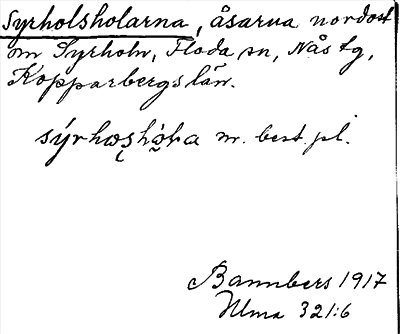 Syrholsholarna, åsarna nordost
om Syrholn, Floda sn, Nås tg,
Kopparbergs län.
m. best. pl.
Bannbers 1917
Ulma 321:6